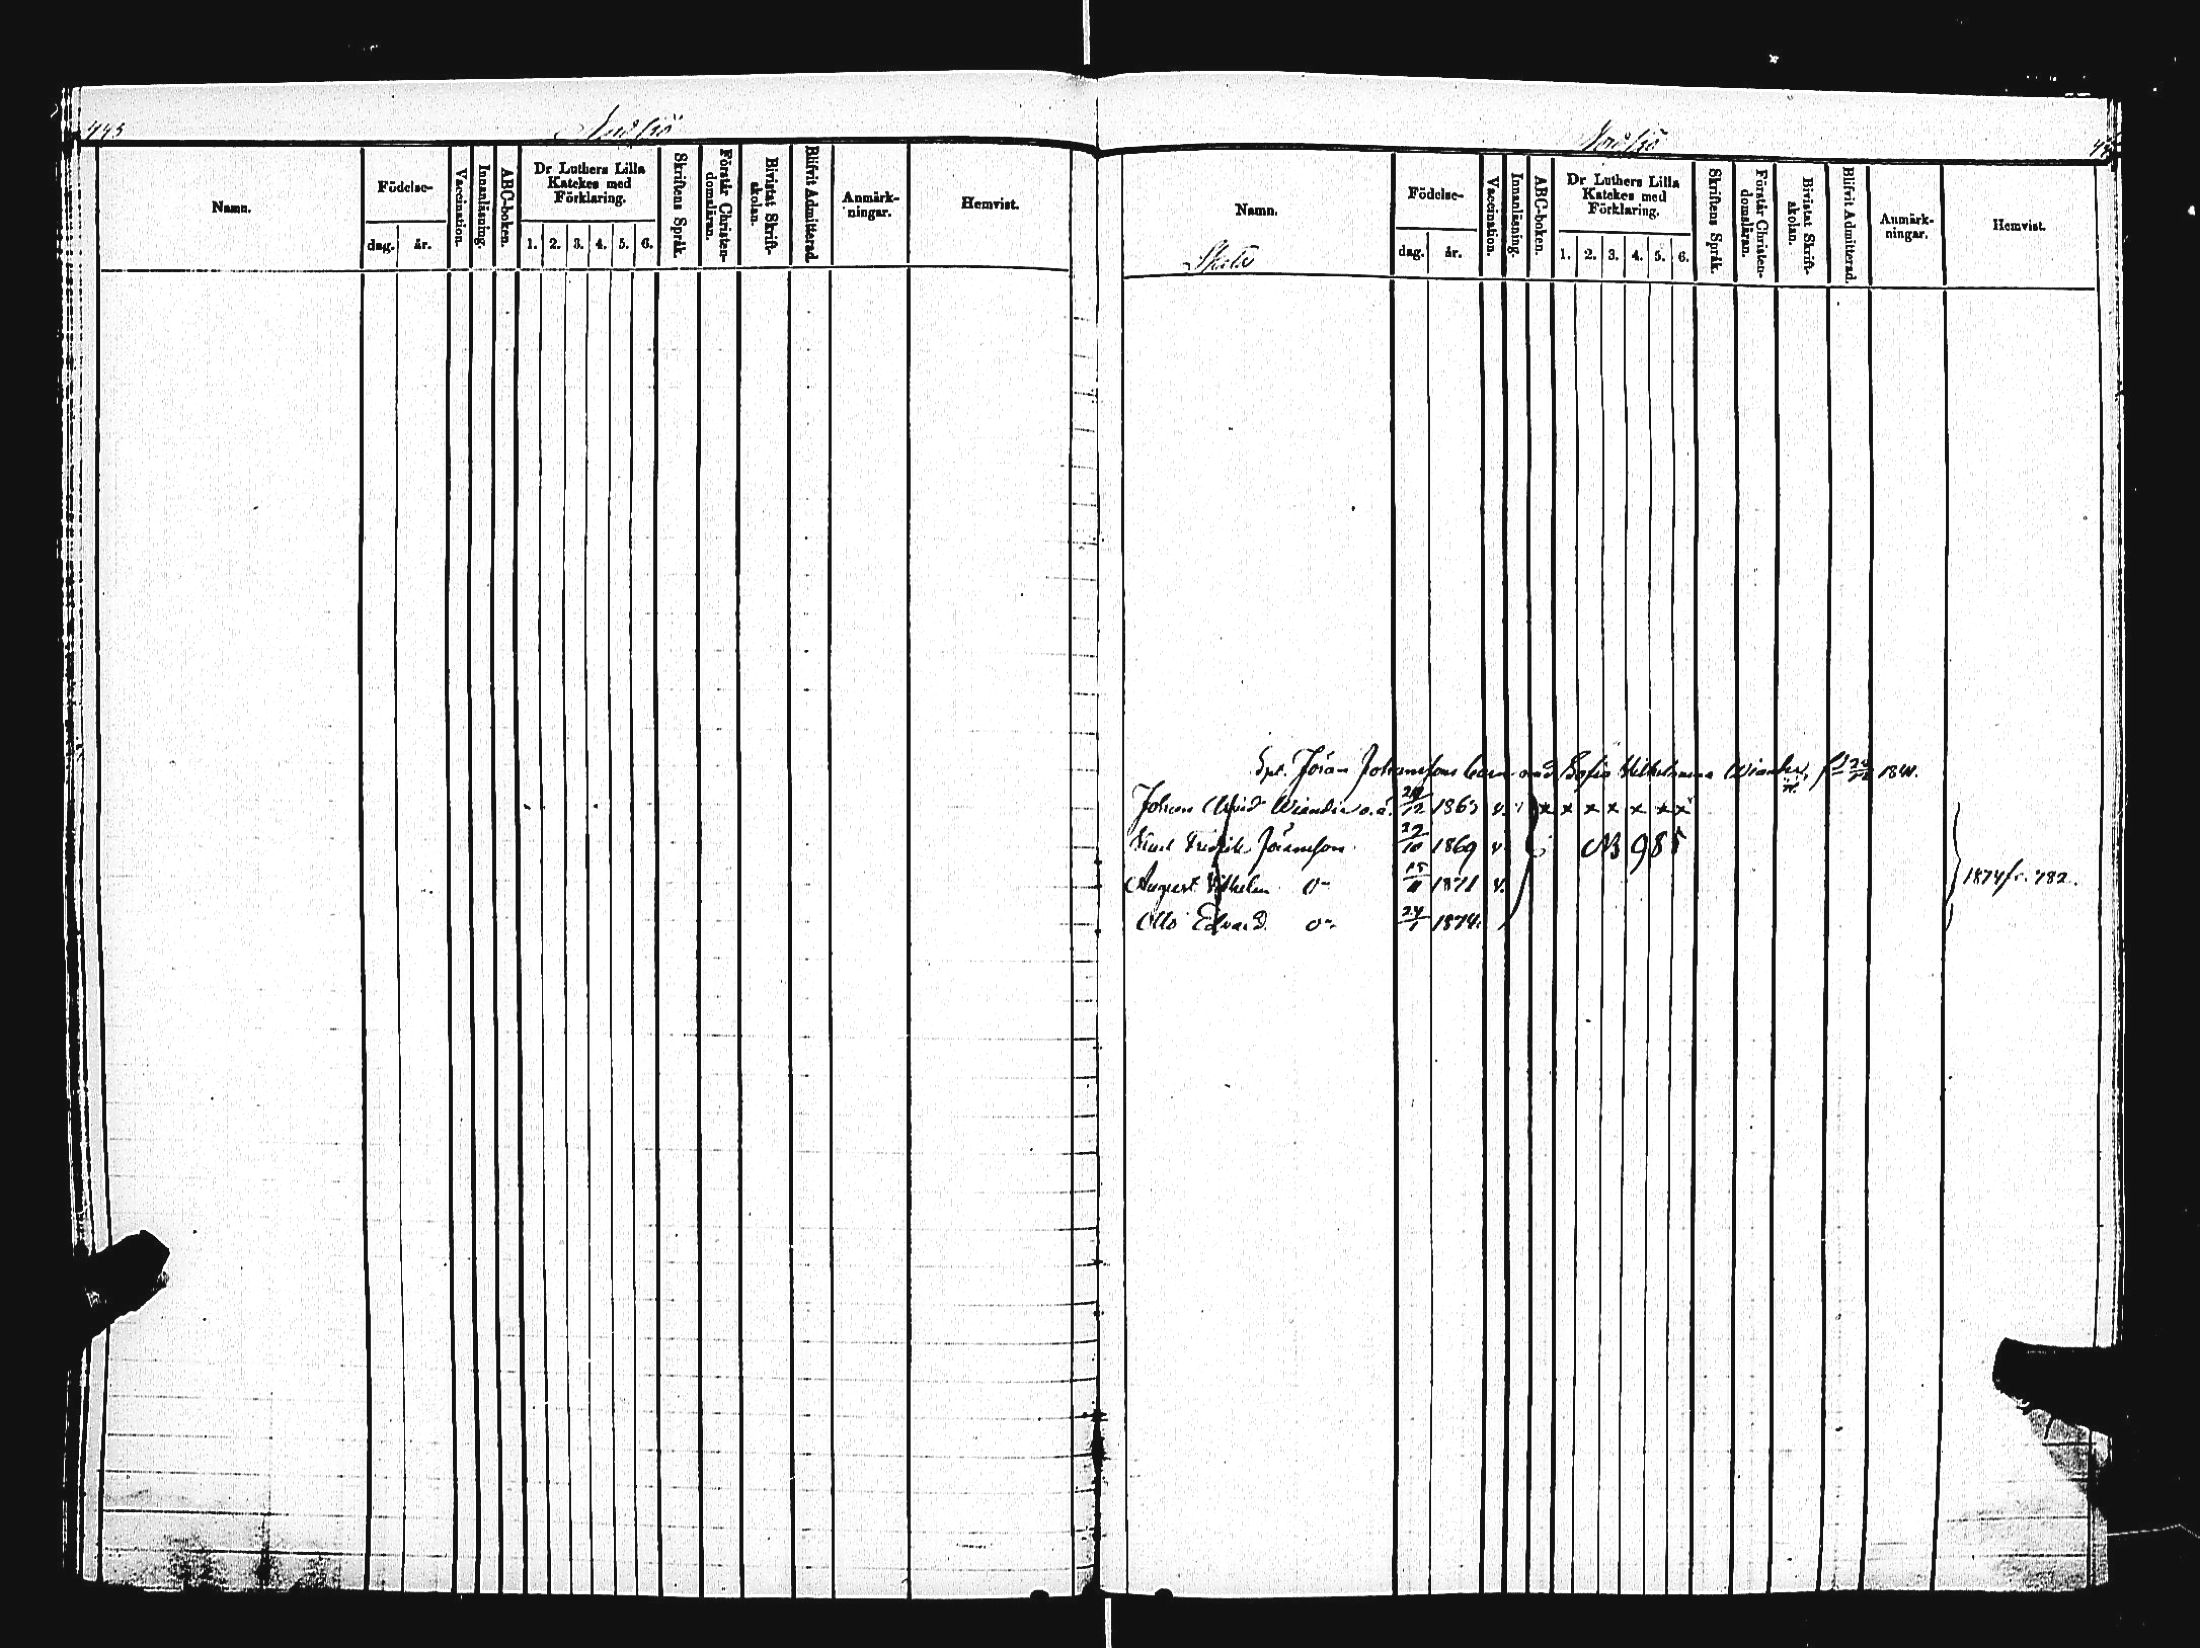 443
Namn. Födelse- dag. år. Vaccination. Innanläsning. ABC-boken. Dr Luthers Lilla Katekes med Förklaring. 1. 2. 3. 4. 5. 6. Skriftens Språk. Förstår Christen-domsläran. Bivistat Skrift-skolan. Blifvit Admitterad. Anmärk-ningar. Hemvist.
Namn. Födelse- dag. år. Vaccination. Innanläsning. ABC-boken. Dr Luthers Lilla Katekes med Förklaring. 1. 2. 3. 4. 5. 6. Skriftens Språk. Förstår Christen-domsläran. Bivistat Skrift-skolan. Blifvit Admitterad. Anmärk-ningar. Hemvist.
Jöran Johanssons barn med Sofia Wilhelmina
Johan 12 1863 v. x x x x x x x
Karl Fredrik Jöransson 27/10 1869 v. NB 985
August Vilhelm o- 15/11 1871 v. 1874 fr. 782.
Otto Edvard. o- 24/1 1874.